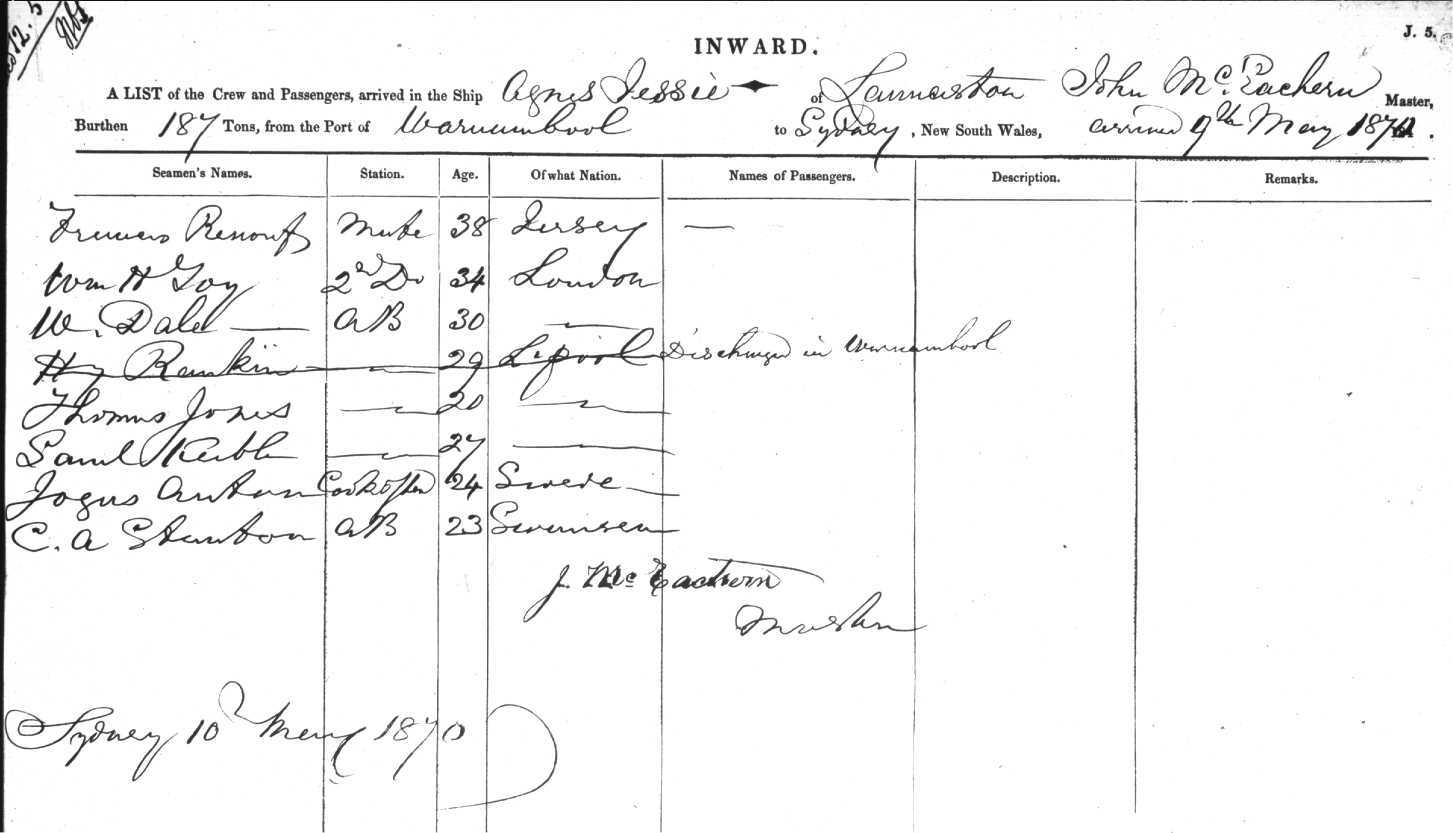 INWARD.
J. 5.
A LIST of the Crew and Passengers, arrived in the Ship Agnes Jessie of Launceston John McEachern Master,
Burthen 187 Tons, from the Port of Warnambool to Sydney, New South Wales, arrived 9th May 1870.
Seamen's Names. Station. Age. Of what Nation. Names of Passengers. Description. Remarks.
Francis Renouf Mate 38 Jersey —
Wm H Goy 2nd Do 34 London
W. Dale — AB 30 —
Hy Rankin — 29 L'pool Discharged in Warnambool
Thomas Jones — 20 —
Saml Keible — 27 —
Anton 24 Swede —
C. A Stanton AB 23 Swansea
J. McEachern
Master
Sydney 10 May 1870